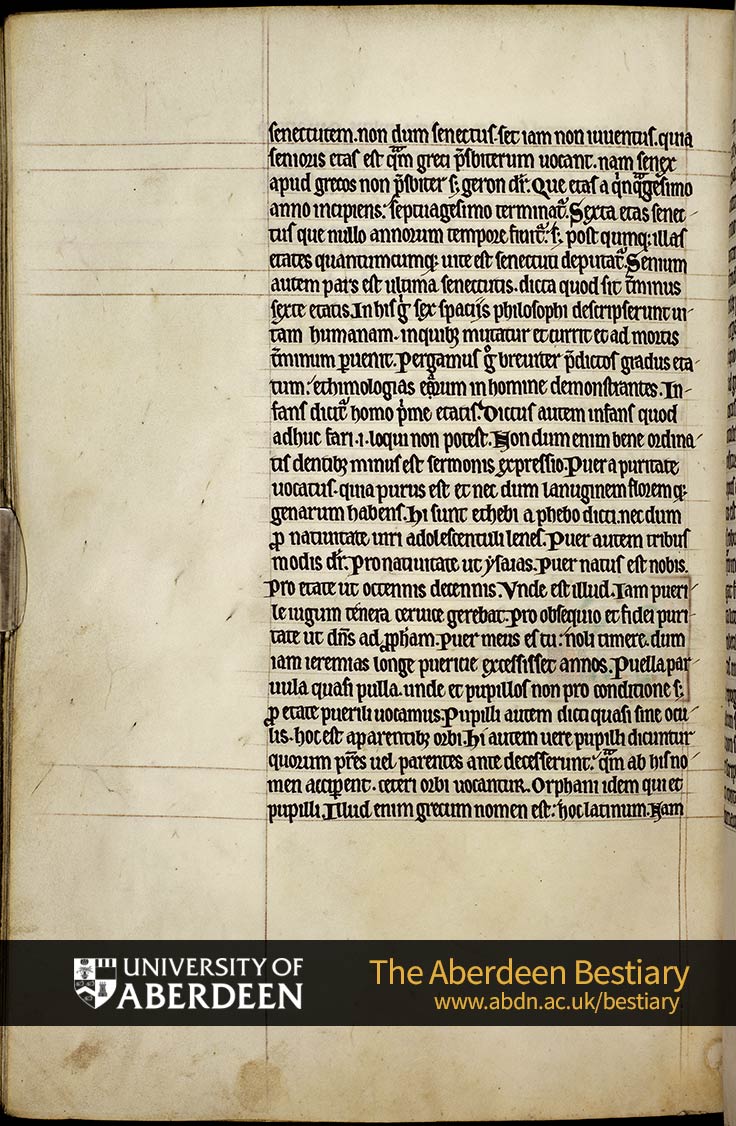 senectutem. non dum senectus. set iam non iuuentus. quia
senioris etas est quam greci p̄sbiterum uocant. nam senex
apud grecos non p̄sbiter s; geron dr̄. Que etas a qͥnqͣgesimo
anno incipiens: septuagesimo terminat᷑. Sexta etas senec-
tus que nullo annorum tempore finit᷑. s; post quinq; illas
etates quantumcumq; uite est senectuti deputat᷑. Senium
autem pars est ultima senectutis. dicta quod sit t̄minus
sexte etatis. In his gͥ sex spacijs philosophi descripserunt ui-
tam humanam. in quibꝫ mutatur et currit et ad mortis
t̄minum ꝑuenit. Pergamus gͦ breuiter p̄dictos gradus eta-
tum: ethimologias eorum in homine demonstrantes. In-
fans dicit᷑ homo pͥme etatis. Dictus autem infans quod
adhuc fari .i. loqui non potest. Non dum enim bene ordina-
tis dentibꝫ minus est sermonis expressio. Puer a puritate
uocatus. quia purus est et nec dum lanuginem floremq;
genarum habens. Hi sunt ethebi a phebo dicti. necdum
ꝓ natiuitate uiri adolescentuli lenes. Puer autem tribus
modis dr̄. Pro natiuitate ut ysaias. Puer natus est nobis.
Pro etate ut octennis decennis. Vnde est illud. Iam pueri-
le iugum tenera ceruice gerebat. Pro obsequio et fidei puri-
tate ut dn̄s ad ꝓpham. Puer meus es tu: noli timere. dum
iam ieremias longe puericie excessisset annos. Puella par-
uula quasi pulla. unde et pupillos non pro conditione s;
ꝓ etate puerili uocamus. Pupilli autem dicti quasi sine ocu-
lis. hoc est a parentibꝫ orbi. Hi autem uere pupilli dicuntur
quorum pr̄es uel parentes ante decesserunt: qͣm ab his no-
men accipent. ceteri orbi uocantur. Orphani idem qui et
pupilli. Illud enim grecum nomen est: hoc latinum. Nam
UNIVERSITY OF
ABERDEEN
The Aberdeen Bestiary
www.abdn.ac.uk/bestiary